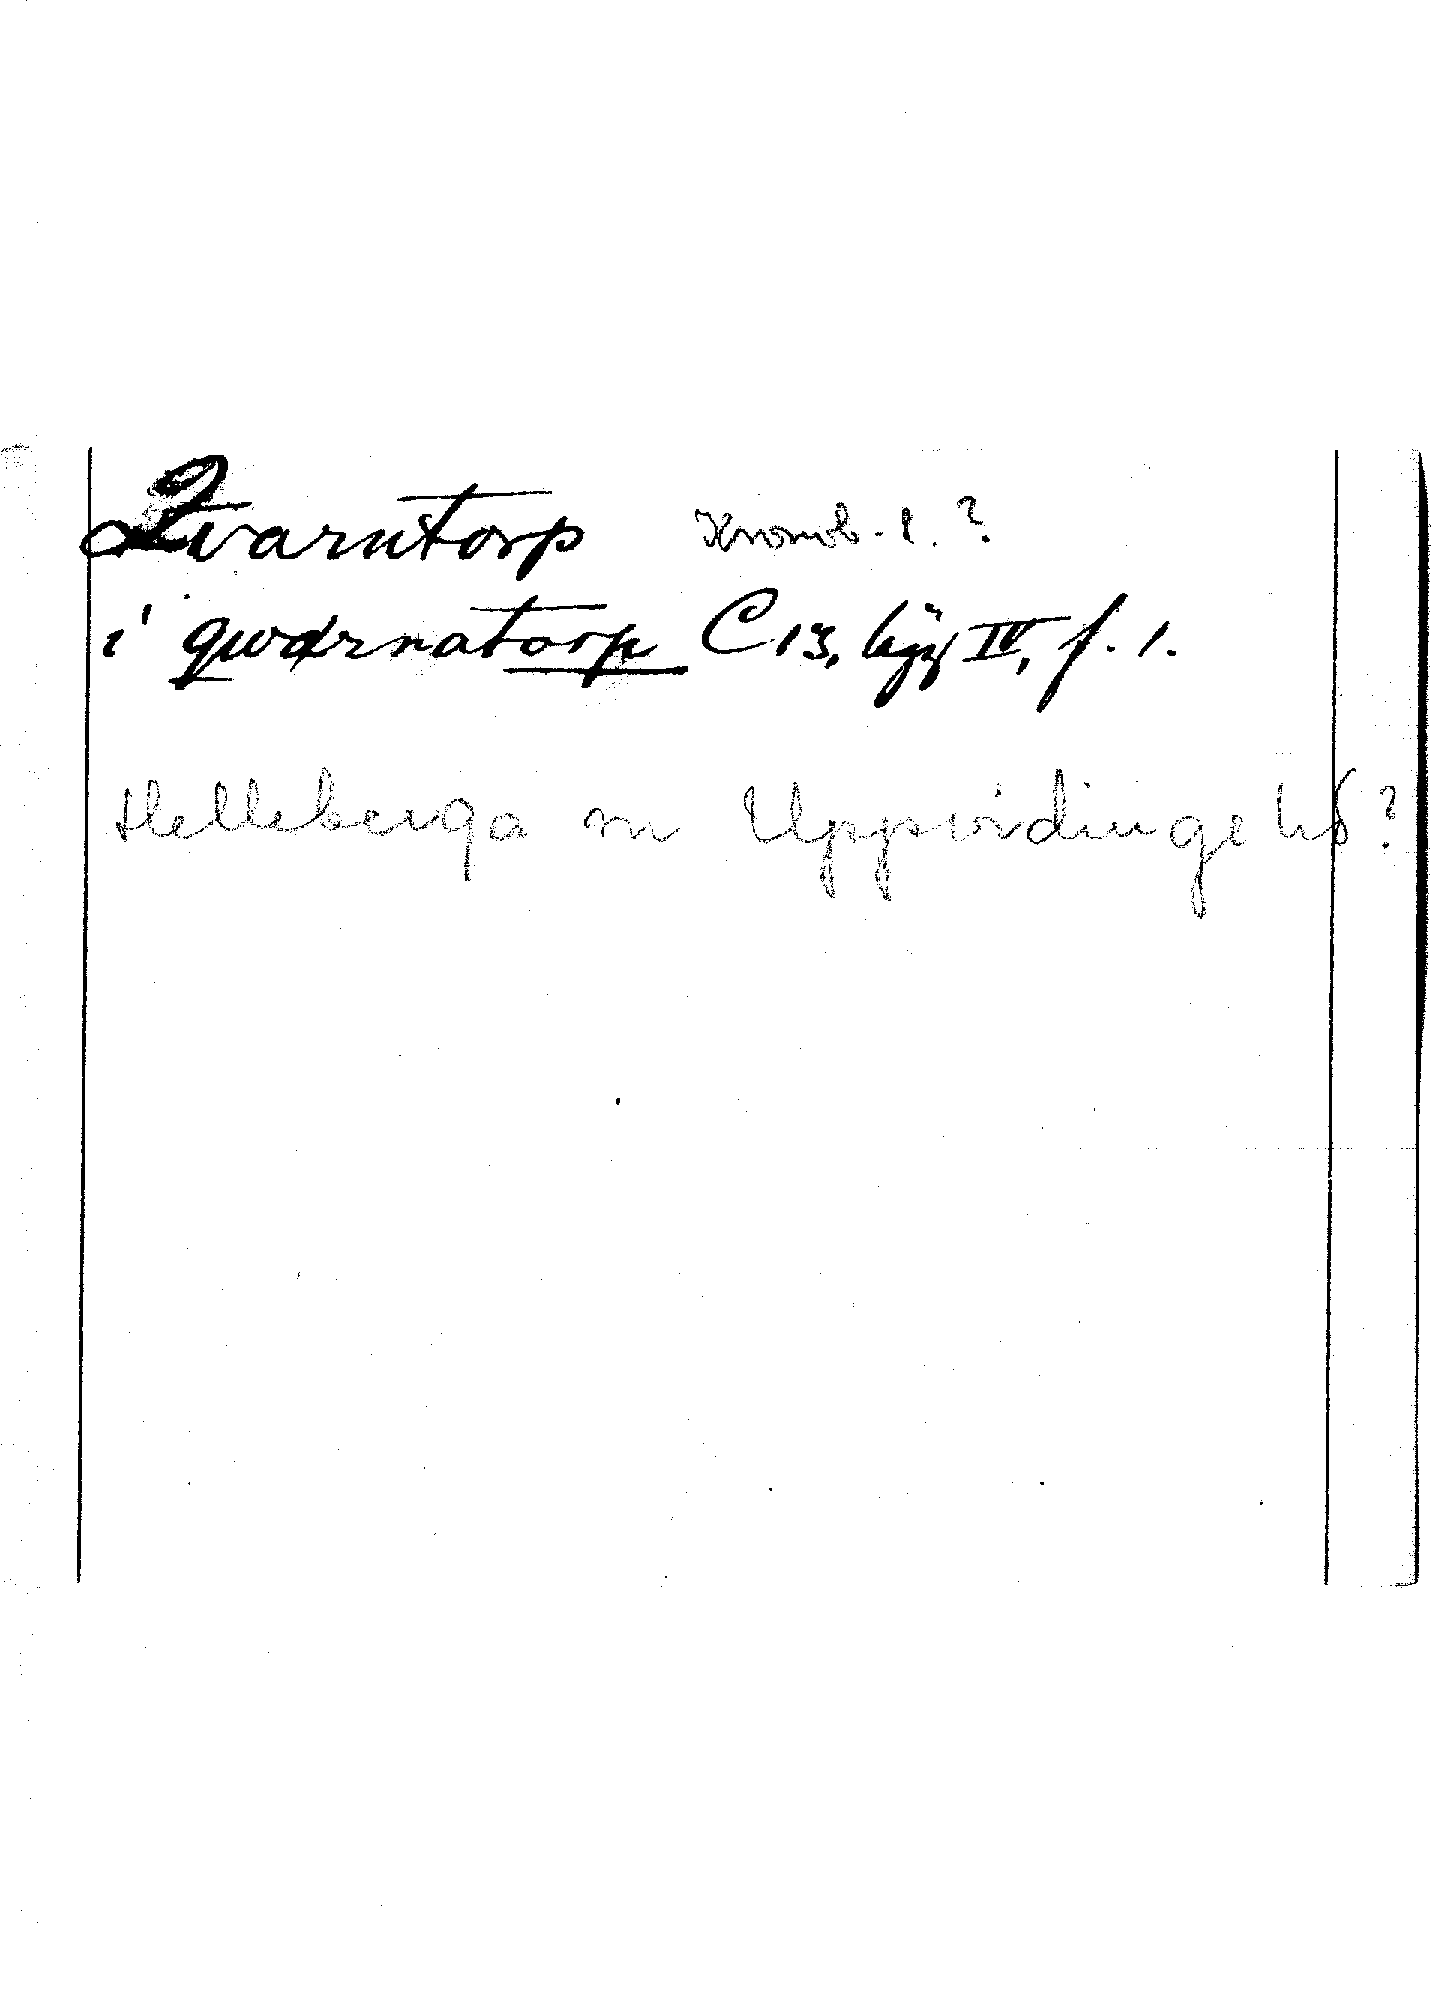 Qvarntorp Kronob. l. ?
i qwærnatorp C 13, läg IV, f. 1.
Helleberga sn Uppvidinge hd ?